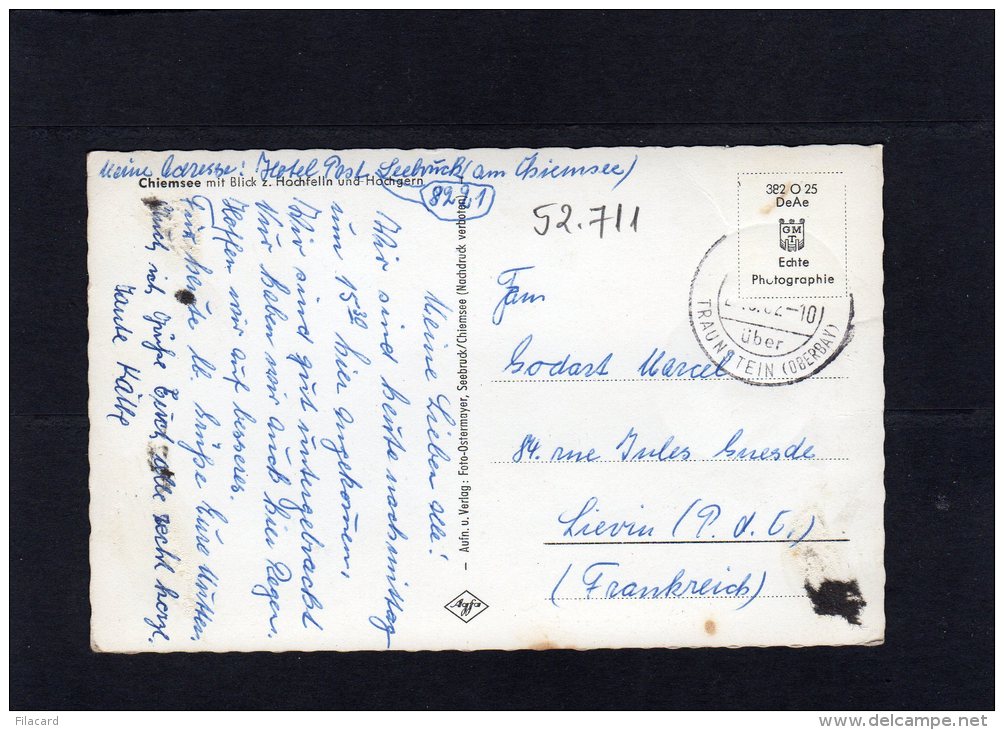 Meine Adresse: Hotel Post Seebruck (am Chiemsee)
8221
Chiemsee mit Blick z. Hochfelln und Hochgern
Meine Lieben alle!
Wir sind heute nachmittag
um 15³⁰ hier angekommen.
Wir sind gut untergebracht
Nur haben wir auch hier Regen.
Hoffen wir auf besseres.
Für heute lb. Grüße Eure Mutter.
Auch ich grüße Euch alle recht herzl.
Tante Käthe
– Aufn. u. Verlag: Foto-Ostermayer, Seebruck/Chiemsee (Nachdruck verboten)
Agfa
52.711
382 O 25
DeAe
GM
T
Echte
Photographie
62-10
über
TRAUNSTEIN (OBERBAY)
Fam
Godart Marcel
84. rue Jules Guesde
Lievin (P. d. C.)
(Frankreich)
Filacard
delcampe.net